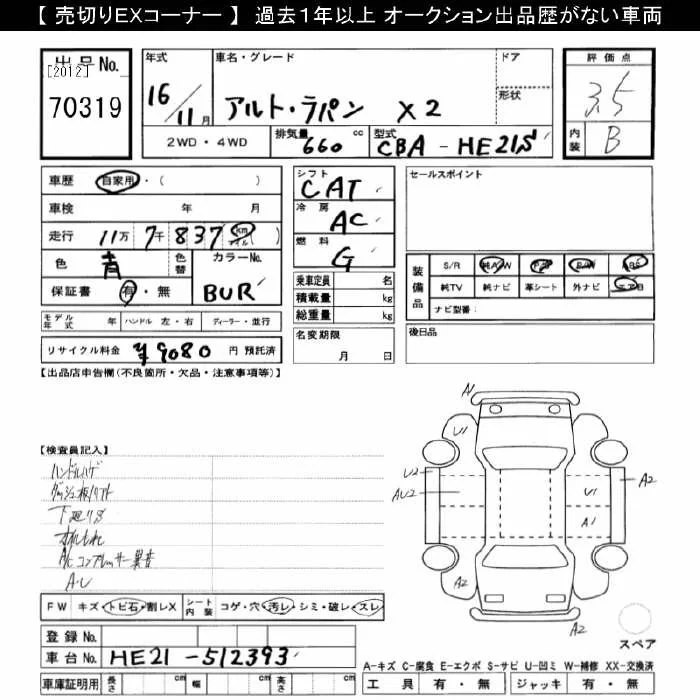 【 売切りEXコーナー 】 過去１年以上 オークション出品歴がない車両
出品No.
[2012]
70319
年式
16/11月
車名・グレード
アルト・ラパン X2
ドア
形状
2WD・4WD
排気量 660 cc
型式 CBA-HE21S
評価点
3.5
内装 B
車歴 自家用・( )
車検 年 月
走行 11万7千837 km マイル ( )
色 青 色替
カラーNo.
保証書 有・無
BUR
モデル年式 年 ハンドル 左・右 ディーラー・並行
リサイクル料金 ¥9080 円 預託済
シフト CAT
冷房 AC
燃料 G
乗車定員 名
積載量 kg
総重量 kg
名変期限
月 日
セールスポイント
装備品
S/R 純A/W P/S P/W ABS
純TV 純ナビ 革シート 外ナビ エアB
ナビ型番:
後日品
【出品店申告欄(不良箇所・欠品・注意事項等)】
【検査員記入】
ハンドルハゲ
下廻りS
A/Cコンプレッサー異音
FW キズ・トビ石・割レX
シート内装 コゲ・穴・汚レ・シミ・破レ・スレ
登録No.
車台No. HE21-512393
車庫証明用 長さ cm 幅 cm 高さ cm
A1
U1
U2
AU2
A2
U1
A1
A2
A2
A2
スペア
A-キズ C-腐食 E-エクボ S-サビ U-凹ミ W-補修 XX-交換済
工具 有・無 ジャッキ 有・無